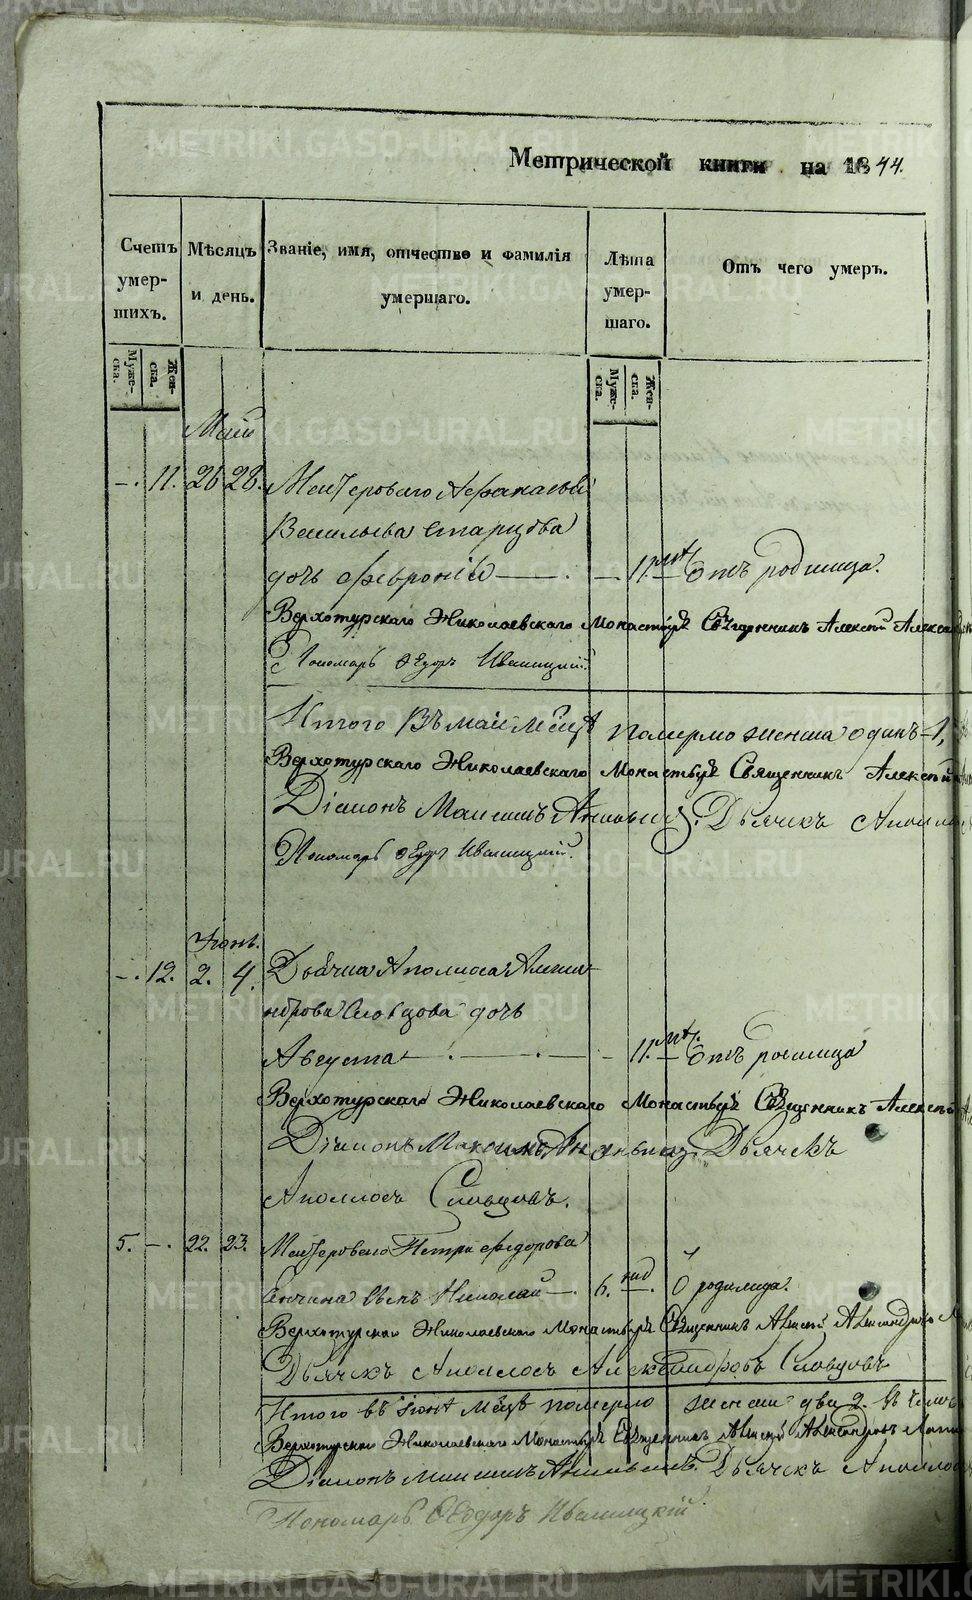 Метрической книги на 1844.
Счетъ умер- шихъ.
Мѣсяцъ и день.
Званіе, имя, отчество и фамилія умершаго.
Лѣта умер- шаго.
Отъ чего умеръ.
Муже- ска.
Жен- ска.
Муже- ска.
Жен- ска.
Маій
—. 11. 26 28. Мастероваго Афанасья
Васильева Старцова
дочь Феврония — 11. отъ родимца.
Верхотурскаго Николаевскаго Монастыря Священникъ Алексѣй
Пономарь Ѳедоръ Ивановскій
Итого въ маи мѣсяцѣ померло женска одинъ 1,
Верхотурскаго Николаевскаго Монастыря Священникъ Алексѣй
Діаконъ Максимъ Ананьинъ. Дьячекъ
Пономарь Ѳедоръ
Іюнь.
—. 12. 2. 4. Дьячка Аполоса
Словцова дочь
Августа — 11. отъ родимца
Верхотурскаго Николаевскаго Монастыря Священникъ Алексѣй
Діаконъ Максимъ Ананьинъ. Дьячекъ
Аполлосъ Словцовъ.
5. —. 22. 23. Мастероваго Петра Федорова
сынъ Николай — 6. нед. — О родимца.
Верхотурскаго Николаевскаго Монастыря Священникъ Алексѣй Александровъ
Дьячекъ Аполлосъ Александровъ Словцовъ
Итого въ Іюнѣ мѣсяцѣ померло женска два 2.
Верхотурскаго Николаевскаго Монастыря Священникъ Алексѣй Александровъ
Діаконъ Максимъ Ананьинъ. Дьячекъ Аполлосъ
Пономарь Ѳеодоръ
METRIKI.GASO-URAL.RU